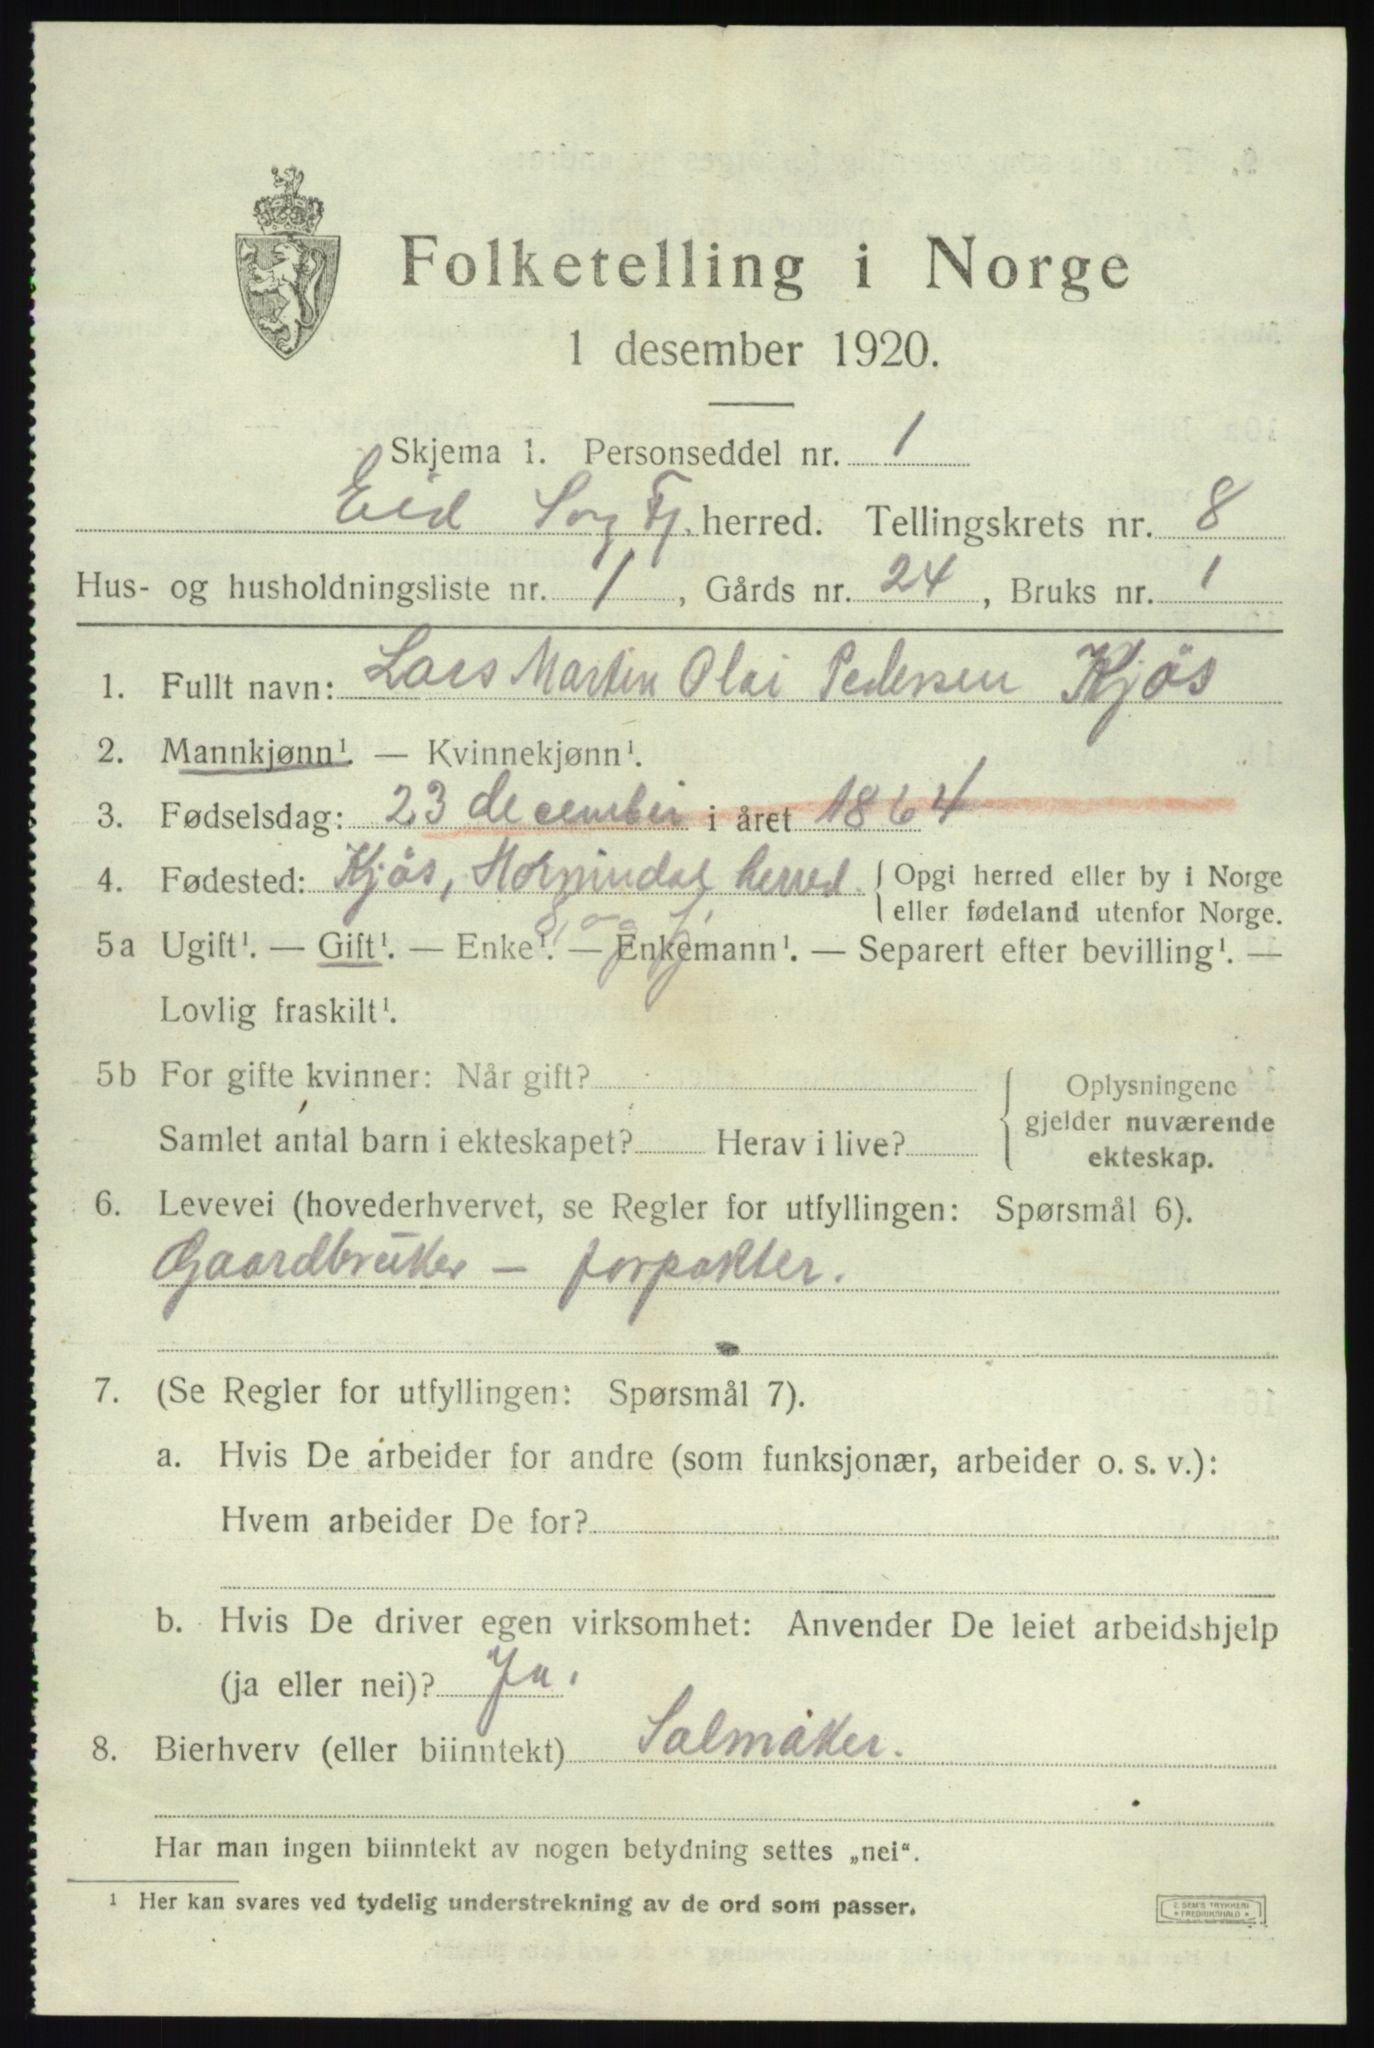 Folketelling i Norge
1 desember 1920.
Skjema 1. Personseddel nr. 1
Eid Sogn Fj. herred. Tellingskrets nr. 8
Hus- og husholdningsliste nr. 1, Gårds nr. 24, Bruks nr. 1
1. Fullt navn: Lars Martin Olai Pedersen Kjös
2. Mannkjønn¹. — Kvinnekjønn¹.
3. Fødselsdag: 23 december i året 1864
4. Fødested: Kjøs, Hornindal herred { Opgi herred eller by i Norge
eller fødeland utenfor Norge.
5a Ugift¹. — Gift¹. — Enke¹. — Enkemann¹. — Separert efter bevilling¹. —
Lovlig fraskilt¹.
5b For gifte kvinner: Når gift? { Oplysningene
gjelder nuværende
Samlet antal barn i ekteskapet? Herav i live? ekteskap.
6. Levevei (hovederhvervet, se Regler for utfyllingen: Spørsmål 6).
Gaardbruker — forpakter.
7. (Se Regler for utfyllingen: Spørsmål 7).
a. Hvis De arbeider for andre (som funksjonær, arbeider o. s. v.):
Hvem arbeider De for?
b. Hvis De driver egen virksomhet: Anvender De leiet arbeidshjelp
(ja eller nei)? Ja.
8. Bierhverv (eller biinntekt) Salmåker.
Har man ingen biinntekt av nogen betydning settes „nei“.
¹ Her kan svares ved tydelig understrekning av de ord som passer.
E. SEM'S TRYKKERI
* FREDRIKSHALD *